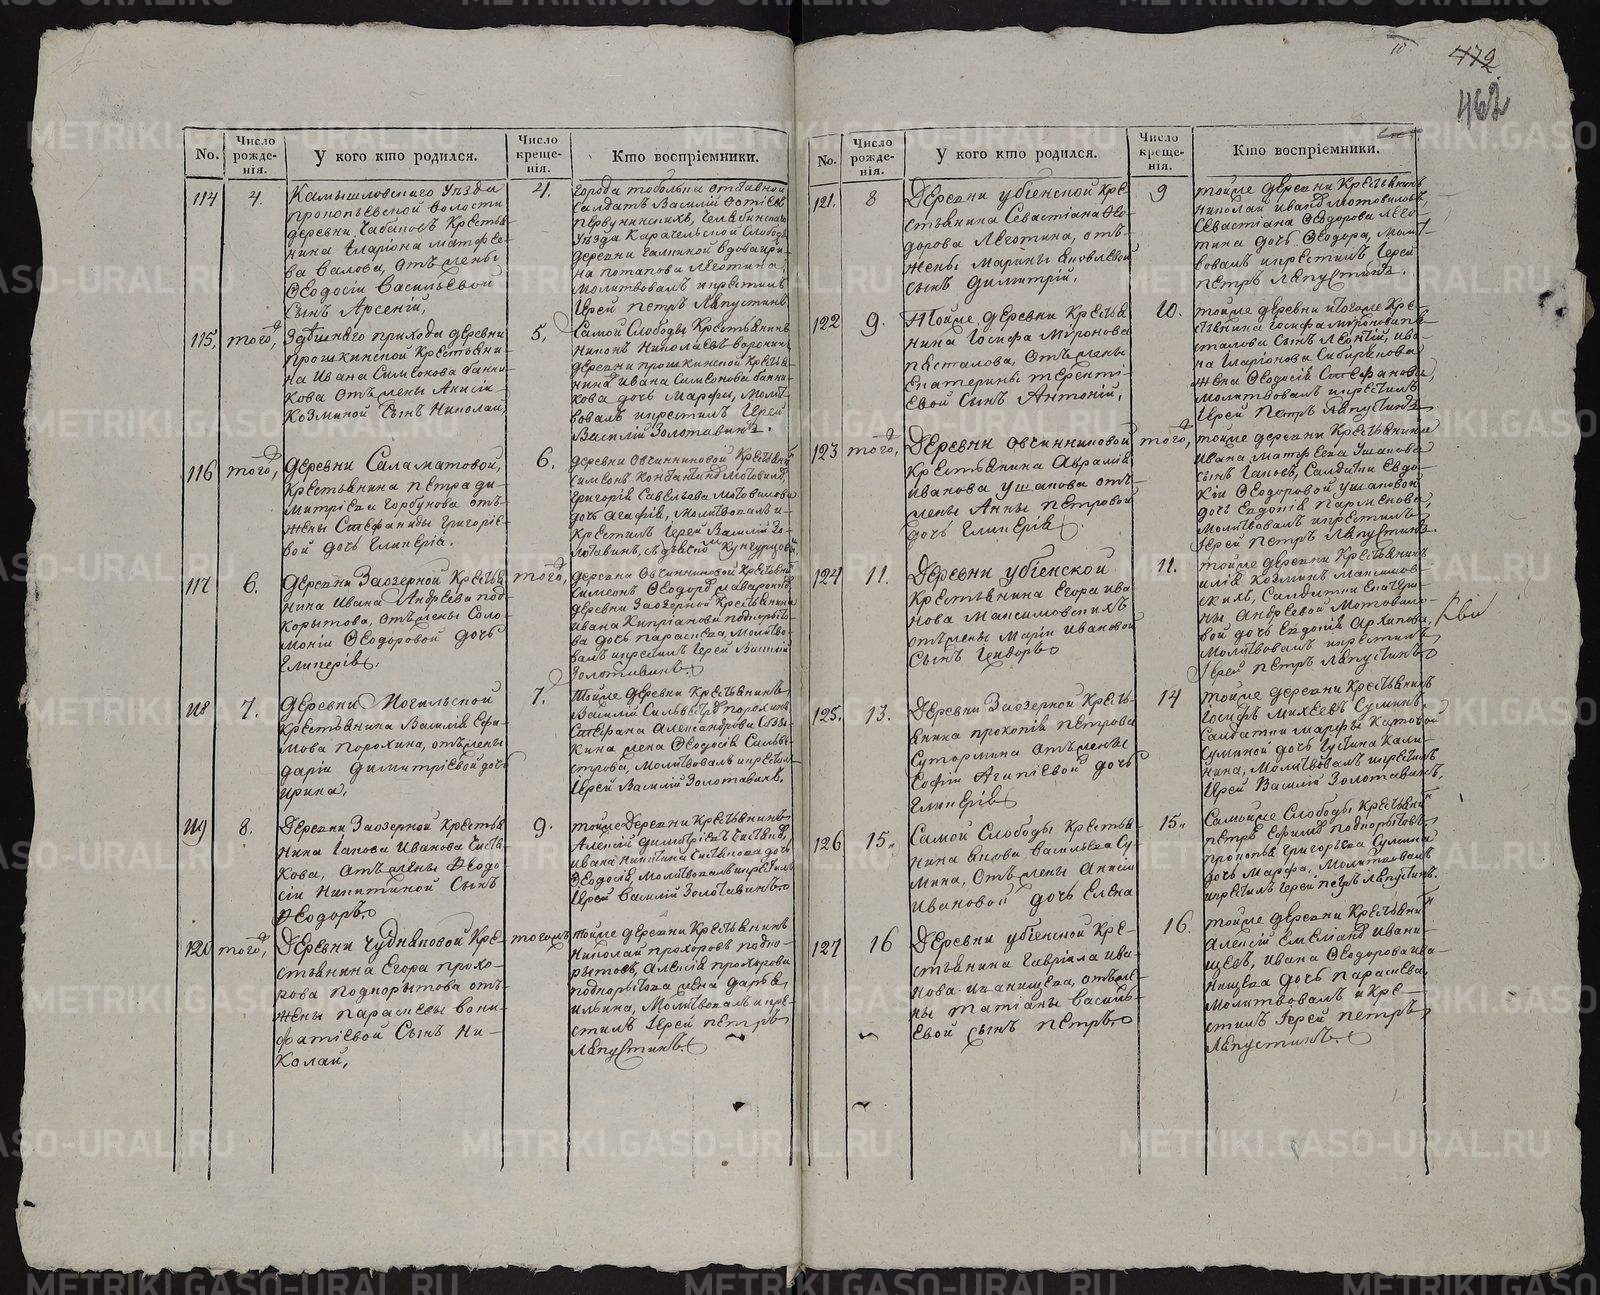 10
472
462
No.
Число рожде-нія.
У кого кто родился.
Число креще-нія.
Кто воспріемники.
114
4.
Камышловскаго Уѣзда
прокопьевской волости
деревни Чабановъ Крестья
нина Иларіона Матфее-
ва Валова, отъ жены
Ѳеодосіи Васильевой
сынъ Арсеній,
4.
города тобольска отставной
Солдатъ Василій
Челябинскаго
Уѣзда Карачельской Слободы
деревни
на потапова Леготина,
молитвовалъ и крестилъ
Іерей Петръ Ляпустинъ
115,
тогожъ,
Здѣшняго прихода деревни
Прошкинской Крестьяни-
на Ивана Симеонова банни-
кова отъ жены Анисіи
Козминой Сынъ Николай,
5,
Самой Слободы Крестьянинъ
Никонъ Николаевъ Воронинъ
деревни прошкинской Крестья-
нина Ивана Симеонова банни-
кова дочь Марфа, молит-
вовалъ и крестилъ Іерей
Василій Золотавинъ.
116
тогожъ,
деревни Саламатовой,
Крестьянина Петра Ди-
митріева Горбунова отъ
жены Стефаниды Григоріе-
вой дочь Гликерія.
6.
деревни Овчинниковой Крестьянинъ
Симеонъ
Григорія Савельева Мотовилова
дочь Агафія, молитвовалъ и
Крестилъ Іерей Василій Зо-
лотавинъ,
117
6.
деревни Заозерной Крестья
нина Ивана Андреева под-
корытова, отъ жены Соло-
моніи Ѳеодоровой дочь
Гликерія.
тогожъ,
деревни Овчинниковой Крестьянинъ
Симеонъ Ѳеодоровъ
деревни Заозерной Крестьянина
Ивана Кипріанова подкорыто-
ва дочь Параскева, молитво-
валъ и крестилъ Іерей Василій
Золотавинъ.
118
7.
деревни Могильской
Крестьянина Василія Ефи-
мова Порохина, отъ жены
Даріи Димитріевой дочь
Ирина.
7.
тойже деревни Крестьянинъ
Василій Сильвестровъ порохинъ
Стефана Александрова
кина жена Ѳеодосія Сильве-
строва, молитвовалъ и крестилъ
Іерей Василій Золотавинъ.
119
8.
Деревни Заозерной Крестья
нина Іакова Иванова Систе-
кова, отъ жены Ѳеодо-
сіи Никитиной Сынъ
Ѳеодоръ.
9.
тойже Деревни Крестьянинъ
Алексій Димитріевъ
Ивана Никитина дочь
Ѳеодосія, молитвовалъ и крестилъ
Іерей Василій Золотавинъ
120
тогожъ,
Деревни Чудняковой Кре-
стьянина Егора Прохо-
рова Подкорытова отъ
жены Параскевы Вони-
фатіевой Сынъ Ни-
колай,
тогожъ
тойже деревни Крестьянинъ
Николай прохоровъ подко-
рытовъ, Алексія прохорова
подкорытова жена дарья
ильина, молитвовалъ и кре-
стилъ Іерей петръ
Ляпустинъ.
No.
Число рожде-нія.
У кого кто родился.
Число креще-нія.
Кто воспріемники.
121.
8
Деревни убіенской Кре
стьянина Севастіана Ѳео-
дорова Леготина, отъ
жены Марины Яковлевой
сынъ Димитрій,
9
тойже деревни Крестьянинъ
Николай Ивановъ Мотовиловъ,
Севастіана Ѳеодорова Лего-
тина дочь Ѳеодора, молит-
вовалъ и крестилъ Іерей
Петръ Ляпустинъ.
122
9.
Тойже деревни Крестья
нина Іосифа Миронова
пысталова, отъ жены
Екатерины Теренті-
евой Сынъ Антоній,
10.
тойже деревни Кре-
стьянина Іосифа Миронова пы-
сталова сынъ Леонтій, ива-
на Иларіонова Сибирякова
жена Ѳеодосія Стефанова,
молитвовалъ и крестилъ
Іерей Петръ Ляпустинъ.
123
тогожъ,
Деревни Овчинниковой
Крестьянина Аврамія
Иванова Ушакова отъ
жены Анны Петровой
дочь Гликерія.
тогожъ,
тойже деревни Крестьянина
Ивана Матфеева Ушакова
сынъ Іаковъ, Солдатки Евдо-
кіи Ѳеодоровой Ушаковой
дочь Евдокія Парменова
молитвовалъ и крестилъ
Іерей Петръ Ляпустинъ.
124
11.
Деревни убіенской
Крестьянина Егора ива
нова Максимовскихъ
отъ жены Маріи Ивановой
Сынъ Исидоръ
11.
тойже деревни Крестьянинъ
Илія Козминъ Максимов-
скихъ, Солдатки Екатери-
ны Андреевой Мотовило-
вой дочь Евдокія Архипова,
молитвовалъ и крестилъ
Іерей Петръ Ляпустинъ
125.
13.
Деревни Заозерной Кресть-
янина Прокопія Петрова
Сутормина отъ жены
Софіи Агапіевой дочь
Гликерія
14
тойже деревни Крестьянинъ
Іосифъ Михеевъ Суминъ,
Солдатки Марфы Карповой
Суминой дочь Іустина Кали-
нина, молитвовалъ и крестилъ
Іерей Василій Золотавинъ.
126
15.
Самой Слободы Крестья-
нина Якова Васильева Су-
мина, отъ жены Анисіи
Ивановой дочь Елена
15.
Самойже Слободы Крестьянинъ
петръ Ефимовъ Подкорытовъ
прокопья Григорьева Сумина
дочь Марфа, молитвовалъ
и крестилъ Іерей петръ Ляпустинъ.
127
16
Деревни убіенской Кре-
стьянина Гавріила Ива-
нова Иванищева, отъ же-
ны Татіаны Василь-
евой сынъ Петръ
16.
тойже деревни Крестьянинъ
Алексій Емеліановъ Ивани-
щевъ, Ивана Ѳеодорова Ива-
нищева дочь Параскева,
молитвовалъ и Кре-
стилъ Іерей Петръ
Ляпустинъ.
METRIKI.GASO-URAL.RU